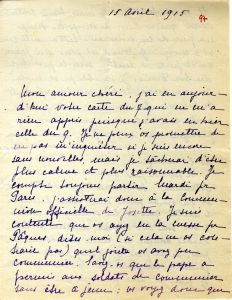 15 Avril 1915
97
Mon amour chéri, j'ai eu aujour-
d'hui votre carte du 8 qui ne m'a
rien appris puisque j'avais eu hier
celle du 9. Je ne peux vous promettre de
ne pas m'inquiéter si je suis encore
sans nouvelles, mais je tâcherai d'être
plus calme et plus raisonnable. Je
compte toujours partir Mardi pr
Paris, j'assisterai donc à la commu-
nion officielle de Josette. Je suis
contente que vous ayez eu la messe pr
Pâques, dites moi (si cela ne vous con-
trarie pas) quel jour vous avez pu
communier. Savez vs que le pape a
permis aux soldats de communier
sans être à jeun; vs voyez donc que